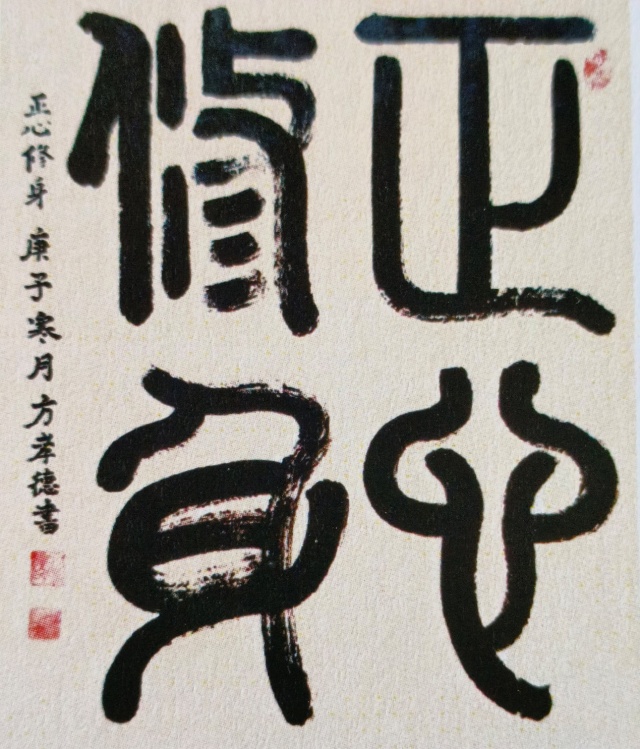 正心
修身
正心修身 庚子寒月方孝德書